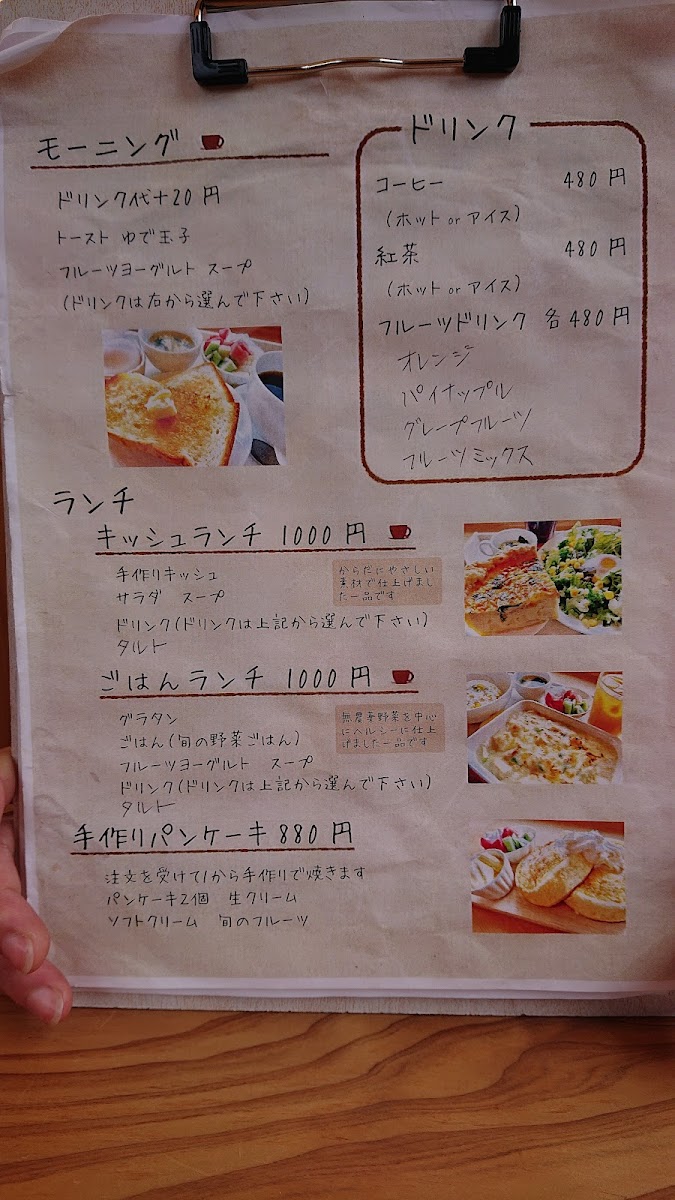 モーニング
ドリンク代+20円
トースト ゆで玉子
フルーツヨーグルト スープ
(ドリンクは右から選んで下さい)
ドリンク
コーヒー 480円
(ホット or アイス)
紅茶 480円
(ホット or アイス)
フルーツドリンク 各480円
オレンジ
パイナップル
グレープフルーツ
フルーツミックス
ランチ
キッシュランチ 1000円
手作りキッシュ
サラダ スープ
ドリンク(ドリンクは上記から選んで下さい)
タルト
からだにやさしい
素材で仕上げまし
た一品です
ごはんランチ 1000円
グラタン
ごはん(旬の野菜ごはん)
フルーツヨーグルト スープ
ドリンク(ドリンクは上記から選んで下さい)
タルト
無農薬野菜を中心
にヘルシーに仕上
げました一品です
手作りパンケーキ 880円
注文を受けて1から手作りで焼きます
パンケーキ2個 生クリーム
ソフトクリーム 旬のフルーツ